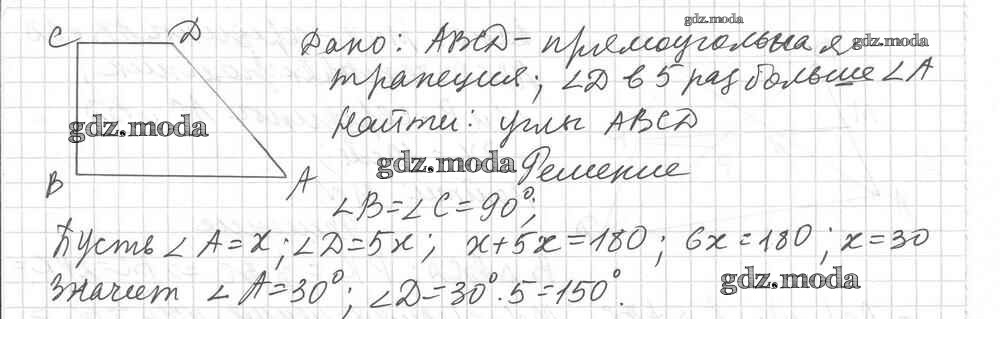 gdz.moda
C D Дано: ABCD - прямоугольная gdz.moda
трапеция; ∠D в 5 раз больше ∠A
gdz.moda Найти: углы ABCD
gdz.moda Решение
B A ∠B=∠C=90°;
Пусть ∠A=x; ∠D=5x; x+5x=180; 6x=180; x=30
Значит ∠A=30°; ∠D=30°·5=150°.
gdz.moda